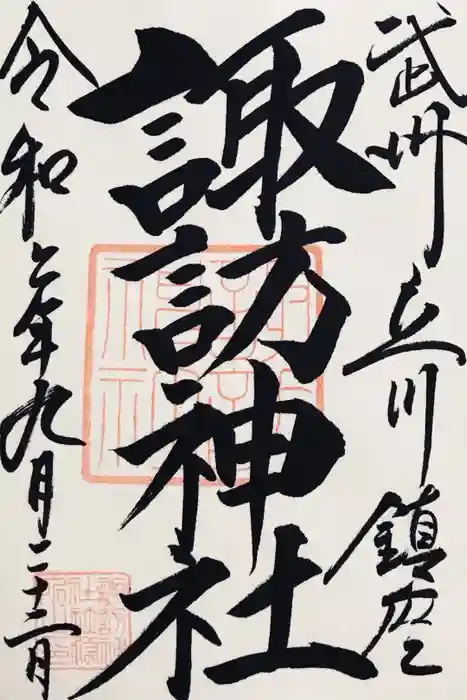 武州立川鎮座
諏訪神社
令和六年九月二十三日